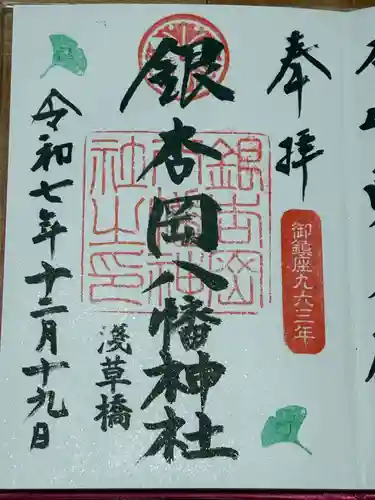 奉拝
御鎮座九六三年
銀杏岡八幡神社
銀杏岡
八幡神
社之印
浅草橋
令和七年十二月十九日